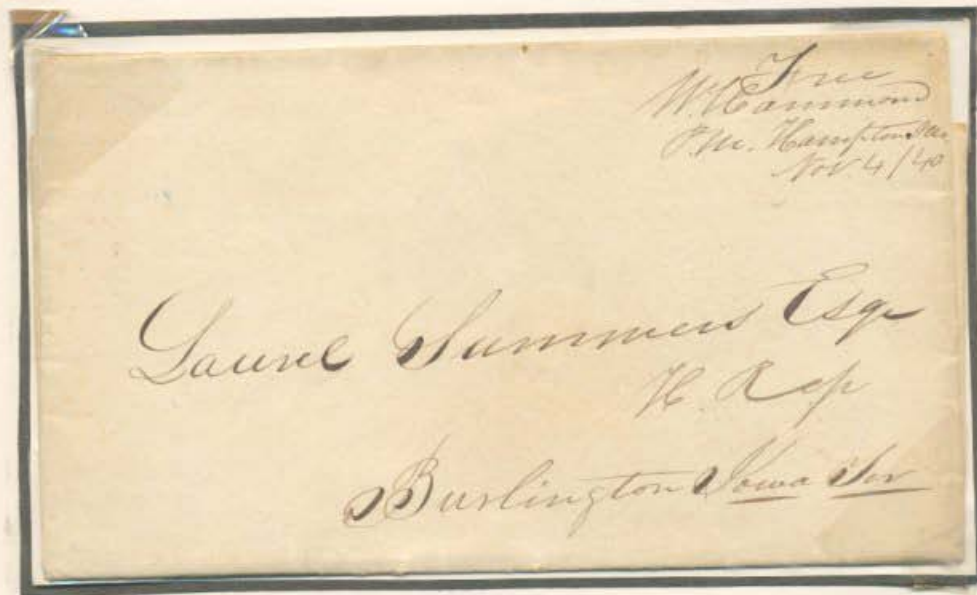 Free
W. Hammond
P.M. Hampton
Nov 4/40
Laurel Summers Esqr
H. Rep
Burlington Iowa Ter